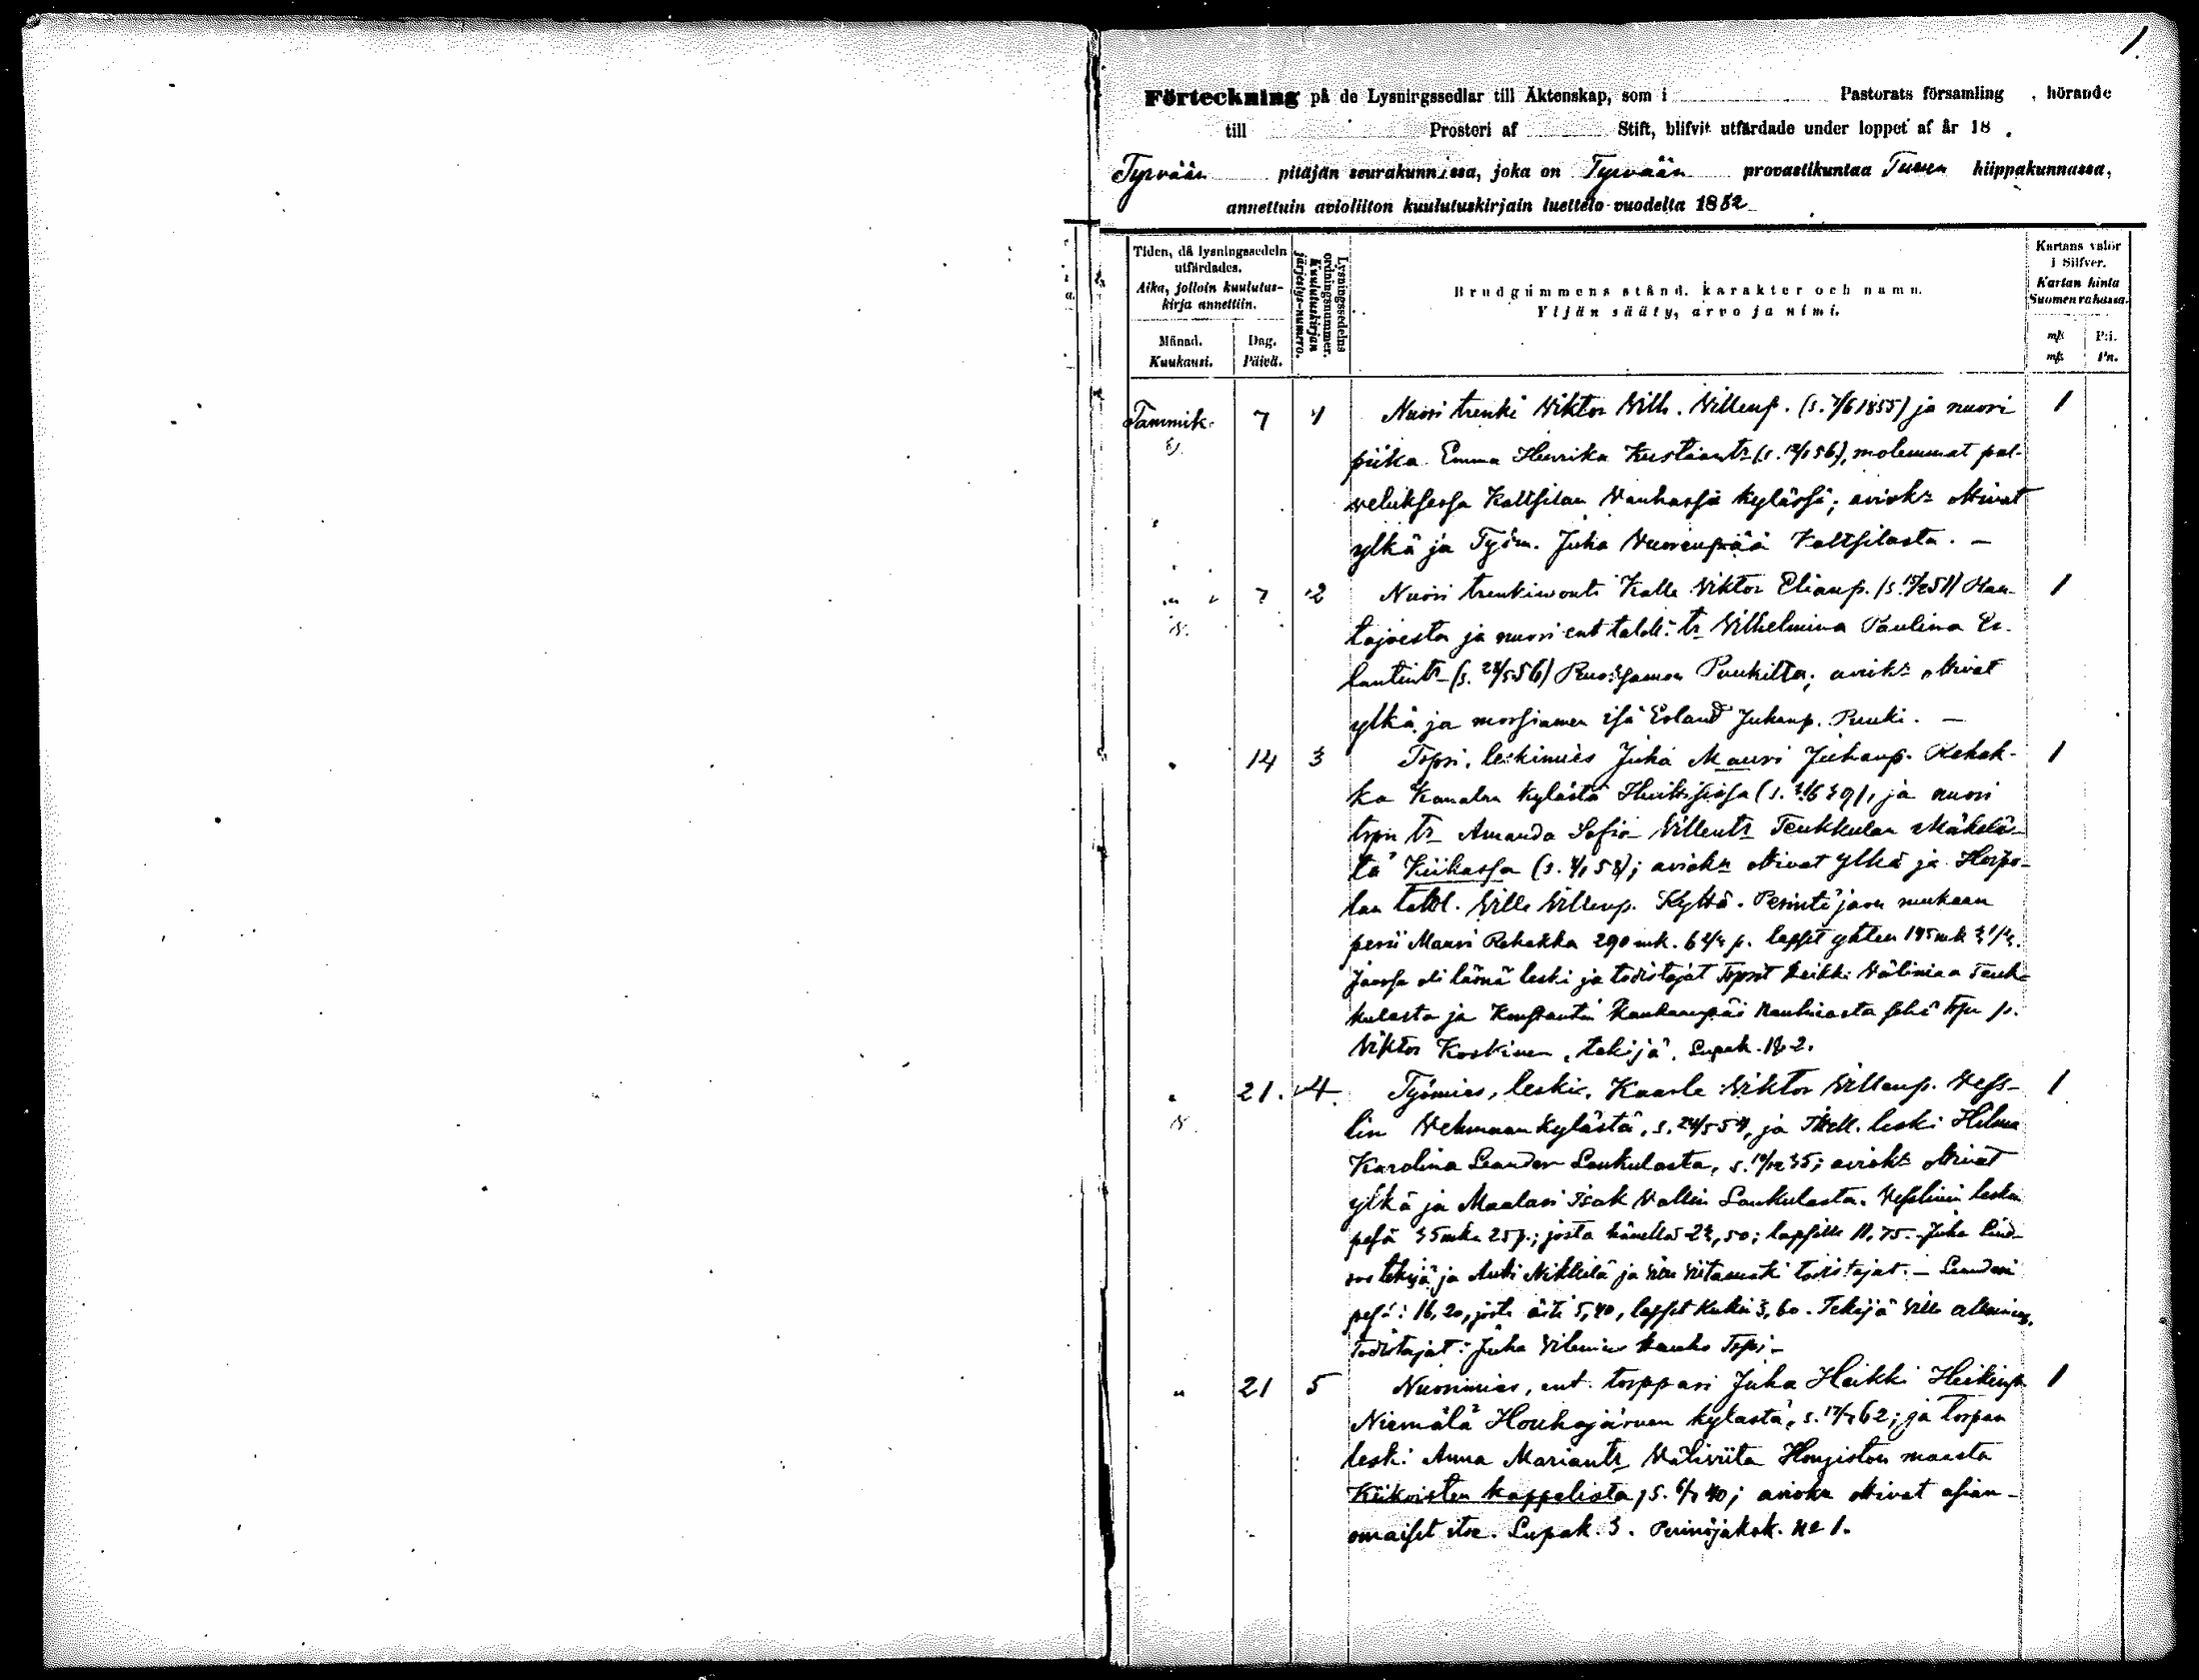 1.
Förteckning på de Lysningssedlar till Äktenskap, som i Pastorats församling , hörande
till Prosteri af Stift, blifvit utfärdade under loppet af år 18 .
Tyrvään pitäjän seurakunnissa, joka on Tyrvään provastikuntaa Turun hiippakunnassa,
annettuin avioliiton kuulutuskirjain luettelo vuodelta 1882
Tiden, då lysningssedeln utfärdades.
Aika, jolloin kuulutus-kirja annettiin.
Månad.
Kuukausi.
Dag.
Päivä.
Lysningssedelns ordningsnummer.
Kuulutuskirjan järjestys-numero.
Brudgummens stånd, karakter och namn.
Yljän sääty, arvo ja nimi.
Kartans valör i Silfver.
Kartan hinta Suomen rahassa.
mk Pi.
mk Pn.
Tammik. 7 1 Nuori trenki Viktor Vilh. Villenp. (s. 7/6 1855) ja nuori 1
piika Emma Henrika Kustaantr (s. 56), molemmat pal-
veluksessa Kaltsilan Vanhassa kylässä; aviok: ottivat
ylkä ja Työm. Juha Vuorenpää Kaltsilasta. —
" 7 2 Nuori trenkivouti Kalle Viktor Elianp. (s. 15/2 51) Hau- 1
tajoesta ja nuori ent taldi: tr Vilhelmina Paulina Er-
lantintr (s. 28/5 56) Puukilta; aviok: ottivat
ylkä ja morsiamen isä Erland Juhanp. Puuki. —
" 14 3 Torpri, leskimies Juha Mauri Juhanp. Rekok- 1
ka kylästä (s. 39), ja nuori
torpn tr Amanda Sofia Villentr Teukkulan Mäkelä-
tä Kiikassa (s. 4/1 58); aviok: ottivat ylkä ja
lan taldl. Ville Villenp. Kyttä. Perintöjaon mukaan
perii Mauri Rekokka 290 mk. 6 2/4 p. lapset yhteen 145 mk
Jaossa oli läsnä leski ja todistajat Torprit Heikki Välimaa Teuk-
kulasta ja Konstantin sekä torpn p.
Viktor Koskinen, tekijä. Lupak. № 2.
" 21. 4. Työmies, leski, Kaarle Viktor Villenp. Vess- 1
lin Vehmaan kylästä, s. 24/5 54, ja leski Hilma
Karolina Leander Laukulasta, s. 35; aviok: ottivat
ylkä ja Maalari Isak Vallin Laukulasta. Vesslinin leski
pesä 35 mk 25 p.; josta hänellä 23,50; lapsille 11,75. Juha Lind-
roos tekijä ja Antti Nikkilä ja todistajat. — Leanderi
pesä: 16,20, josta äiti 5,40, lapset kukin 3,60. Tekijä Ville
Todistajat: Juha Vilenius
" 21 5 Nuorimies, ent. torppari Juha Heikki Heikinp. 1
Niemälä Houhajärven kylästä, s. 17/7 62; ja torpan
leski Anna Mariantr Väliviita Hongiston maasta
Kiikoisten kappelista, s. 6/7 40; aviok: ottivat asian-
omaiset itse. Lupak. 3. Perinöjakok. № 1.